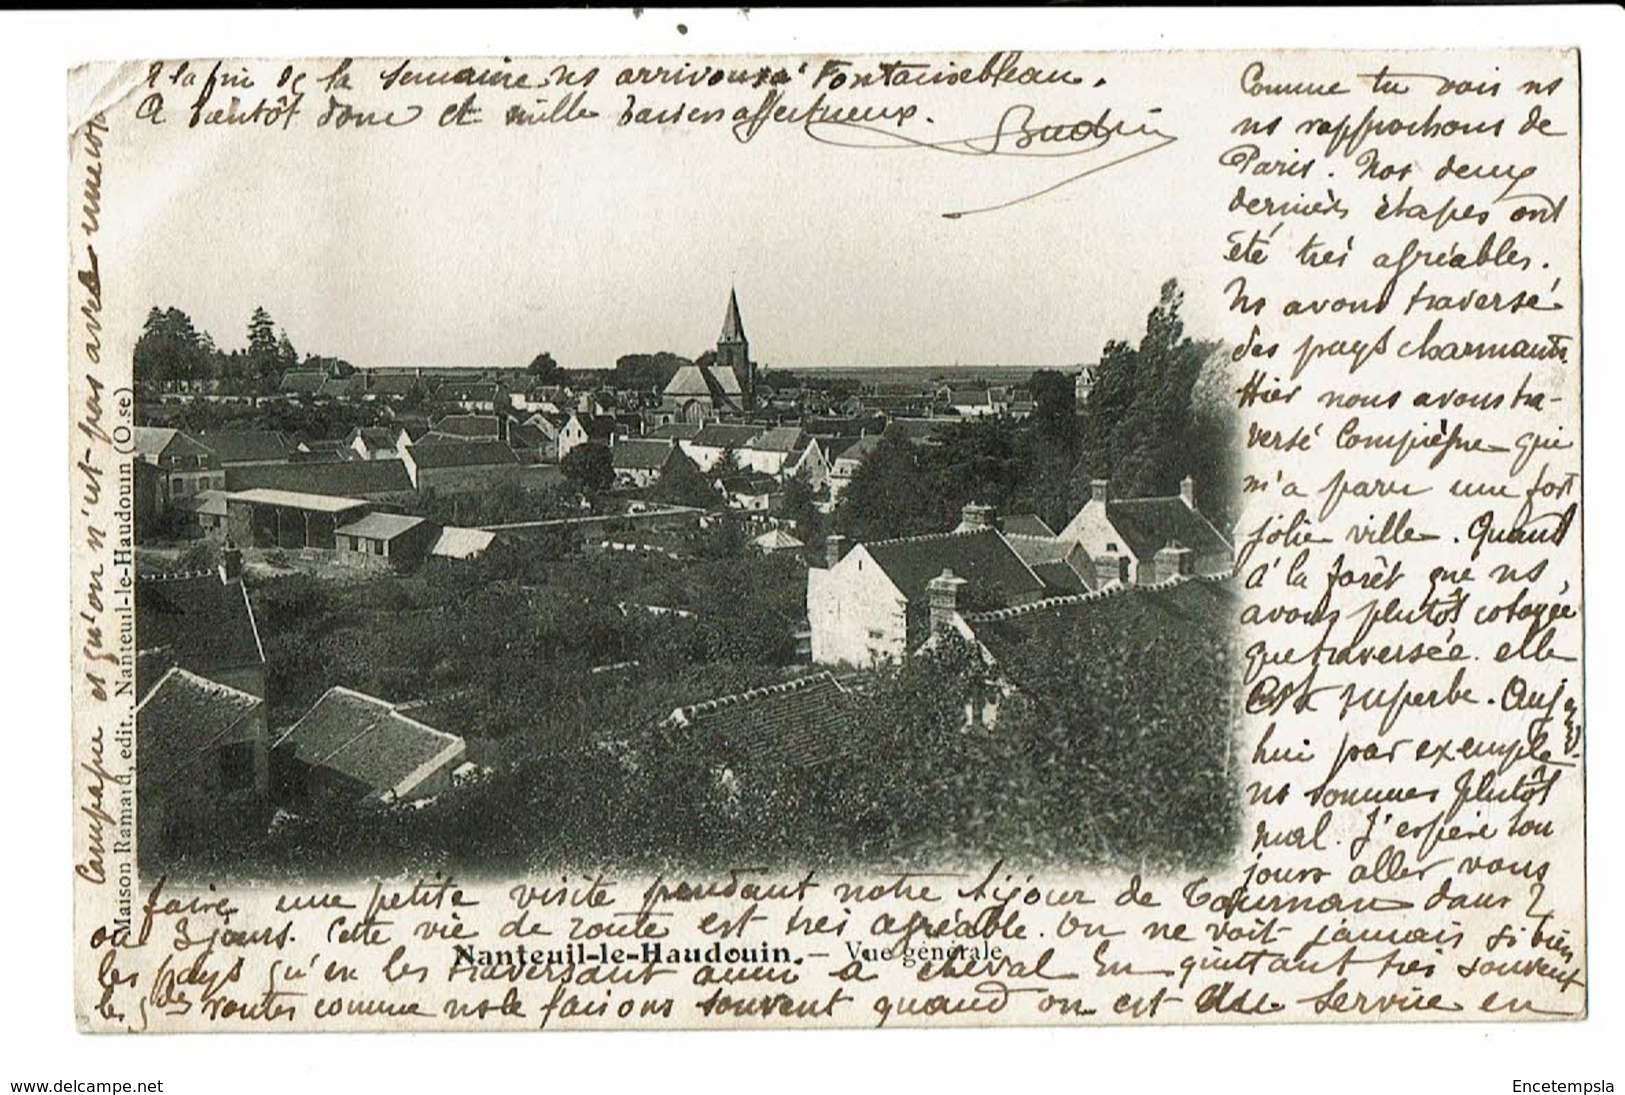 Comme tu vois ns
ns rapprochons de
Paris. Nos deux
dernières étapes ont
été très agréables.
Ns avons traversé
des pays charmants.
Hier nous avons tra-
versé Compiègne qui
m'a paru une fort
jolie ville. Quand
à la forêt que ns
avons plutôt cotoyée
que traversée. elle
est superbe. Aujourd'
hui par exemple
ns sommes plutôt
mal. J'espère tou
jours aller vous
faire une petite visite pendant notre séjour de Tournan dans 2
ou 3 jours. Cette vie de route est très agréable. On ne voit jamais si bien
les pays qu'en les traversant ainsi à cheval En quittant très souvent
les gdes routes comme ns le faisons souvent quand on est de service en
Campagne et qu'on n'est pas avec une
A la fin de la semaine ns arrivons à Fontainebleau.
A bientôt donc et mille baisers affectueux.
Nanteuil-le-Haudouin. — Vue générale
Maison Ramaud, edit., Nanteuil-le-Haudouin (O.se)
www.delcampe.net
Encetempsla